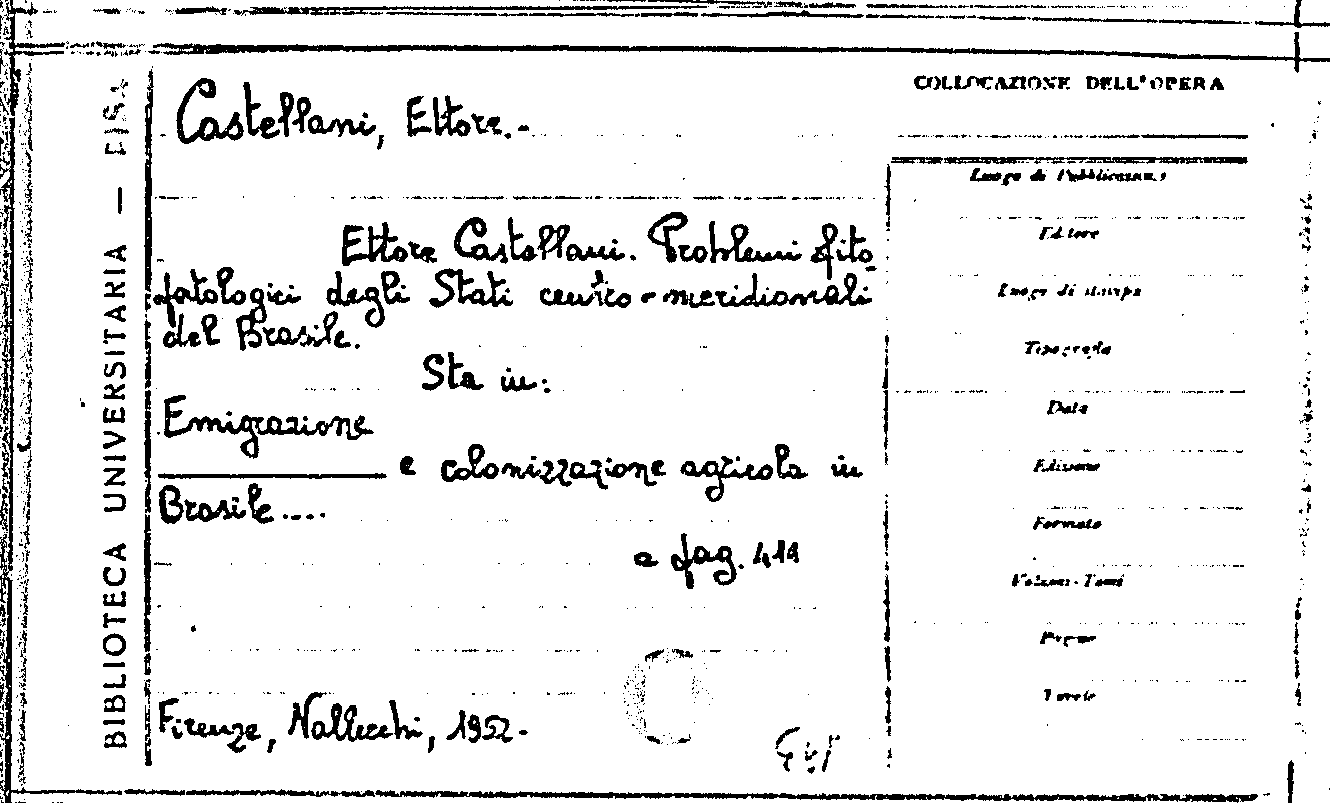 BIBLIOTECA UNIVERSITARIA — PISA
COLLOCAZIONE DELL'OPERA
Castellani, Ettore.-
Ettore Castellani. Problemi fito-
patologici degli Stati centro-meridionali
del Brasile.
Sta in:
Emigrazione
e colonizzazione agricola in
Brasile....
a pag. 411
Firenze, Vallecchi, 1952.
Luogo di Pubblicazione
Editore
Luogo di stampa
Tipografia
Data
Edizione
Formato
Volumi-Tomi
Pagine
Tavole